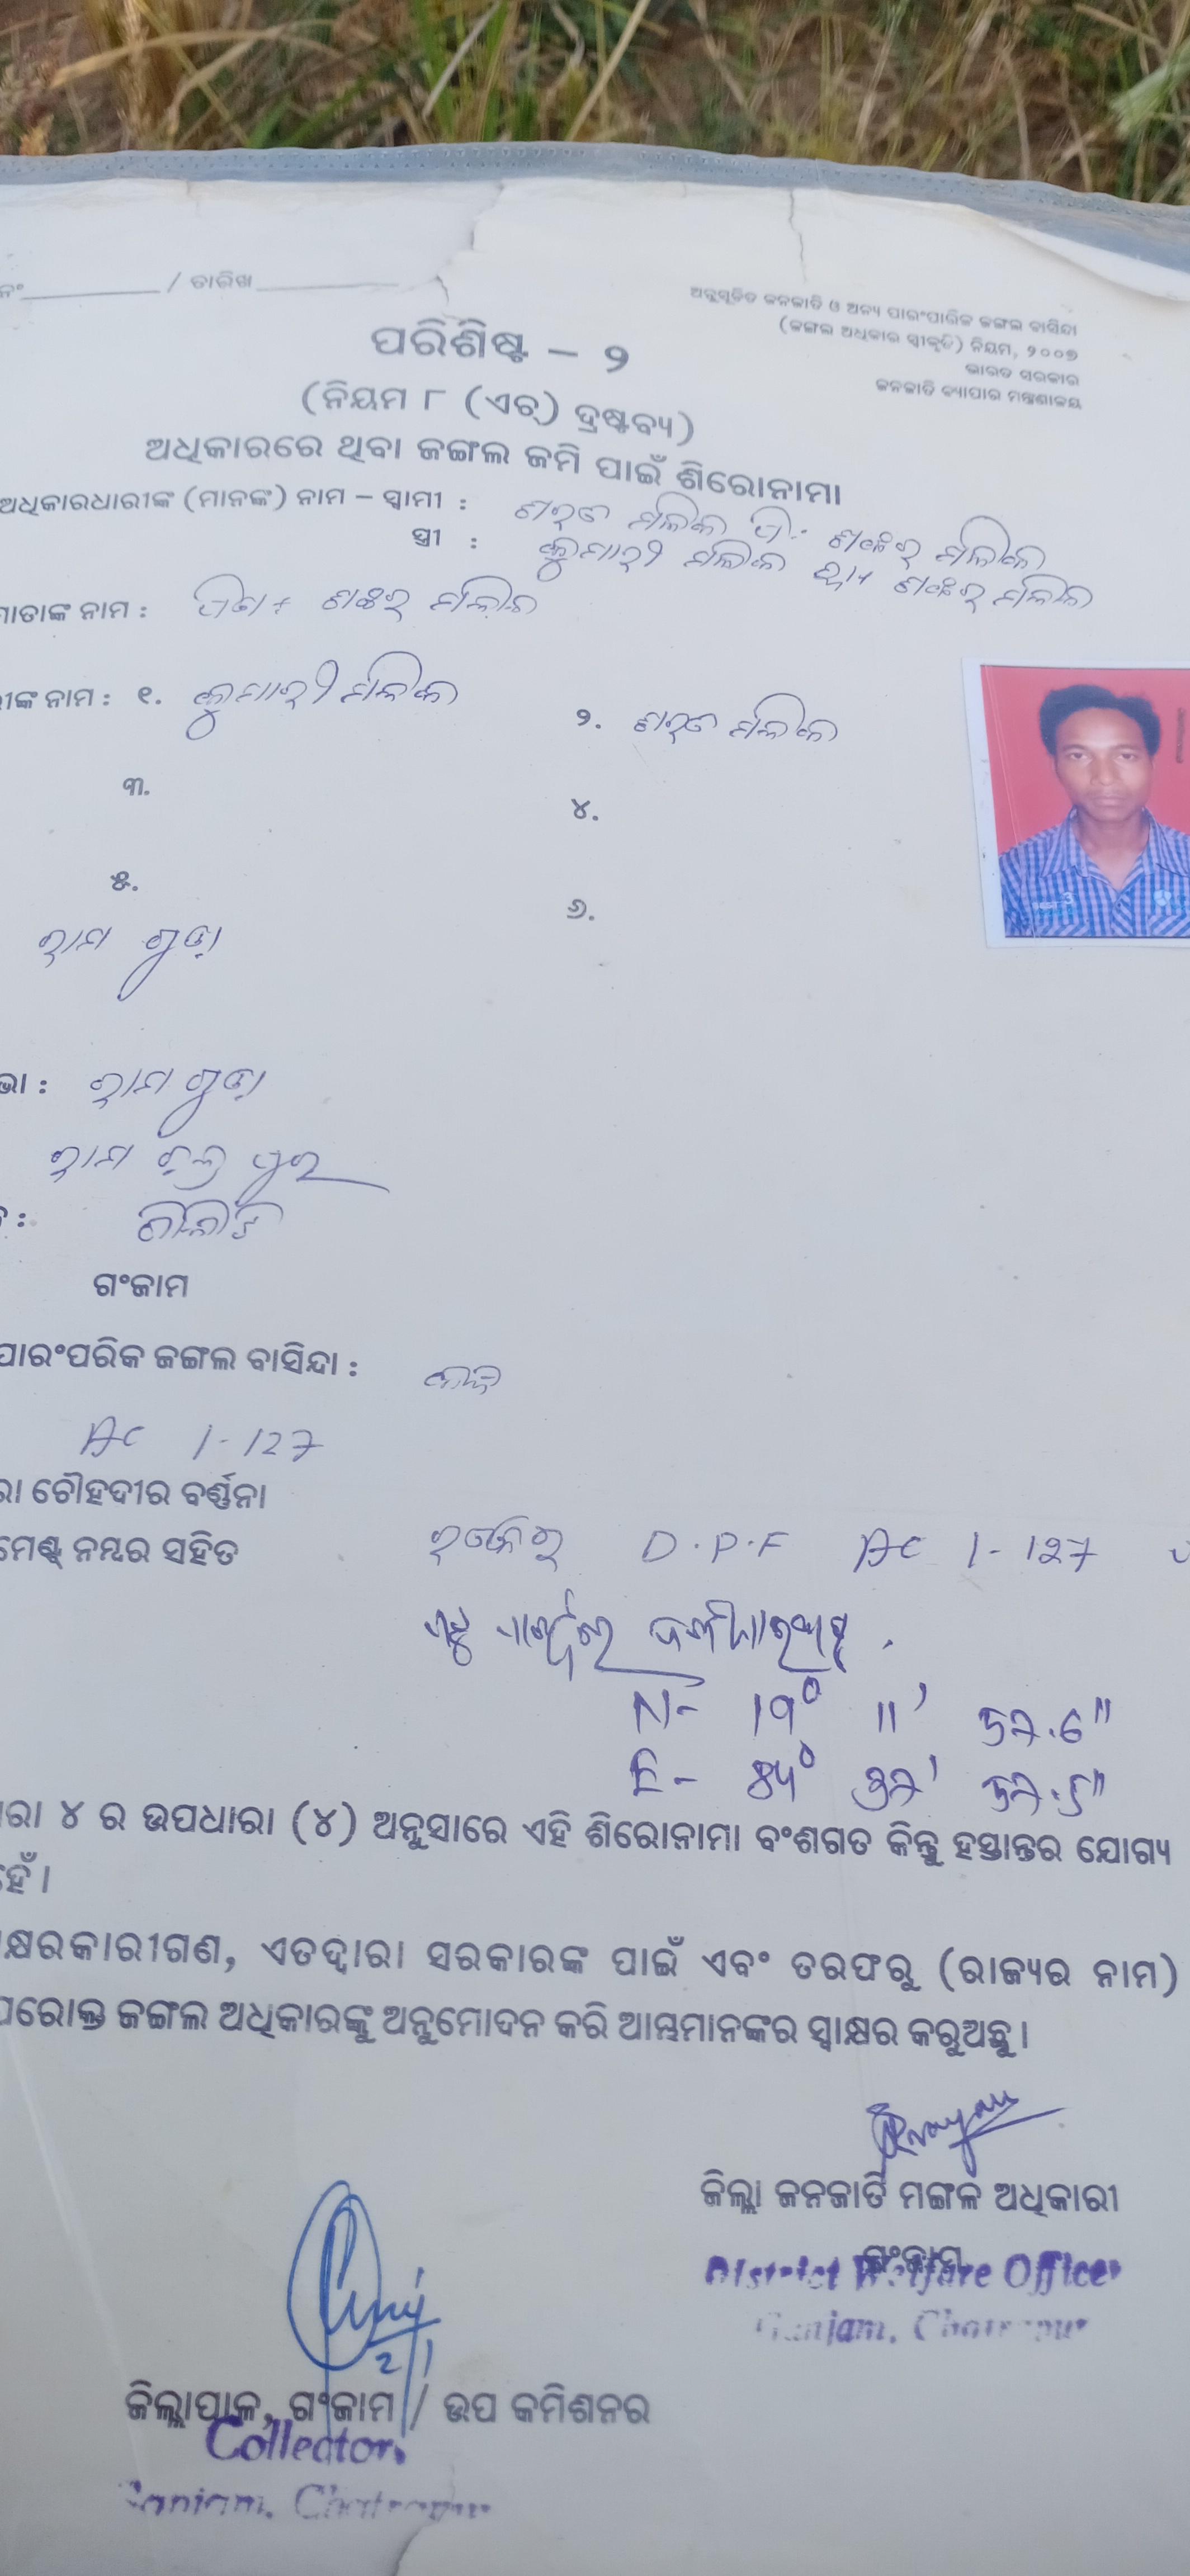 ନଂ / ତାରିଖ
ଅନୁସୂଚିତ ଜନଜାତି ଓ ଅନ୍ୟ ପାରଂପାରିକ ଜଙ୍ଗଲ ବାସିନ୍ଦା
(ଜଙ୍ଗଲ ଅଧିକାର ସ୍ୱୀକୃତି) ନିୟମ, ୨୦୦୭
ଭାରତ ସରକାର
ଜନଜାତି ବ୍ୟାପାର ମନ୍ତ୍ରଣାଳୟ
ପରିଶିଷ୍ଟ – ୨
(ନିୟମ ୮ (ଏଚ୍) ଦ୍ରଷ୍ଟବ୍ୟ)
ଅଧିକାରରେ ଥିବା ଜଙ୍ଗଲ ଜମି ପାଇଁ ଶିରୋନାମା
ଅଧିକାରଧାରୀଙ୍କ (ମାନଙ୍କ) ନାମ – ସ୍ୱାମୀ : ଶରତ ମଲିକ ପି: ଶଙ୍କର ମଲିକ
ସ୍ତ୍ରୀ : କୁମାରୀ ମଲିକ ଶଙ୍କର ମଲିକ
ମାତାଙ୍କ ନାମ : ପିତା: ଶଙ୍କର ମଲିକ
ରୀଙ୍କ ନାମ : ୧. କୁମାରୀ ମଲିକ
୨. ଶରତ ମଲିକ
୩.
୪.
୫.
୬.
ରାମ ଗୁଡା
ଭା : ରାମ ଗୁଡା
ରାମ ଚନ୍ଦ୍ର ପୁର
ଗଂଜାମ
ପାରଂପରିକ ଜଙ୍ଗଲ ବାସିନ୍ଦା :
AC 1-127
ରା ଚୌହଦୀର ବର୍ଣ୍ଣନା
ମେଣ୍ଟ ନମ୍ବର ସହିତ D.P.F AC 1-127
N- 19° 11'
E-
ାରା ୪ ର ଉପଧାରା (୪) ଅନୁସାରେ ଏହି ଶିରୋନାମା ବଂଶଗତ କିନ୍ତୁ ହସ୍ତାନ୍ତର ଯୋଗ୍ୟ
ହେଁ ।
ାକ୍ଷରକାରୀଗଣ, ଏତଦ୍ୱାରା ସରକାରଙ୍କ ପାଇଁ ଏବଂ ତରଫରୁ (ରାଜ୍ୟର ନାମ)
ପରୋକ୍ତ ଜଙ୍ଗଲ ଅଧିକାରଙ୍କୁ ଅନୁମୋଦନ କରି ଆମ୍ଭମାନଙ୍କର ସ୍ୱାକ୍ଷର କରୁଅଛୁ ।
ଜିଲ୍ଲା ଜନଜାତି ମଙ୍ଗଳ ଅଧିକାରୀ
ଗଂଜାମ
District Welfare Officer
Ganjam, Chatrapur
ଜିଲ୍ଲାପାଳ, ଗଂଜାମ / ଉପ କମିଶନର
Collector,
Ganjam, Chatrapur